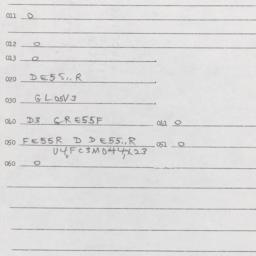 011 0
012 0
013 0
020 DE55..R
030 GL05V3
040 D3 GRE55F 041 0
050 FE55R D DE55..R 051 0
060 0